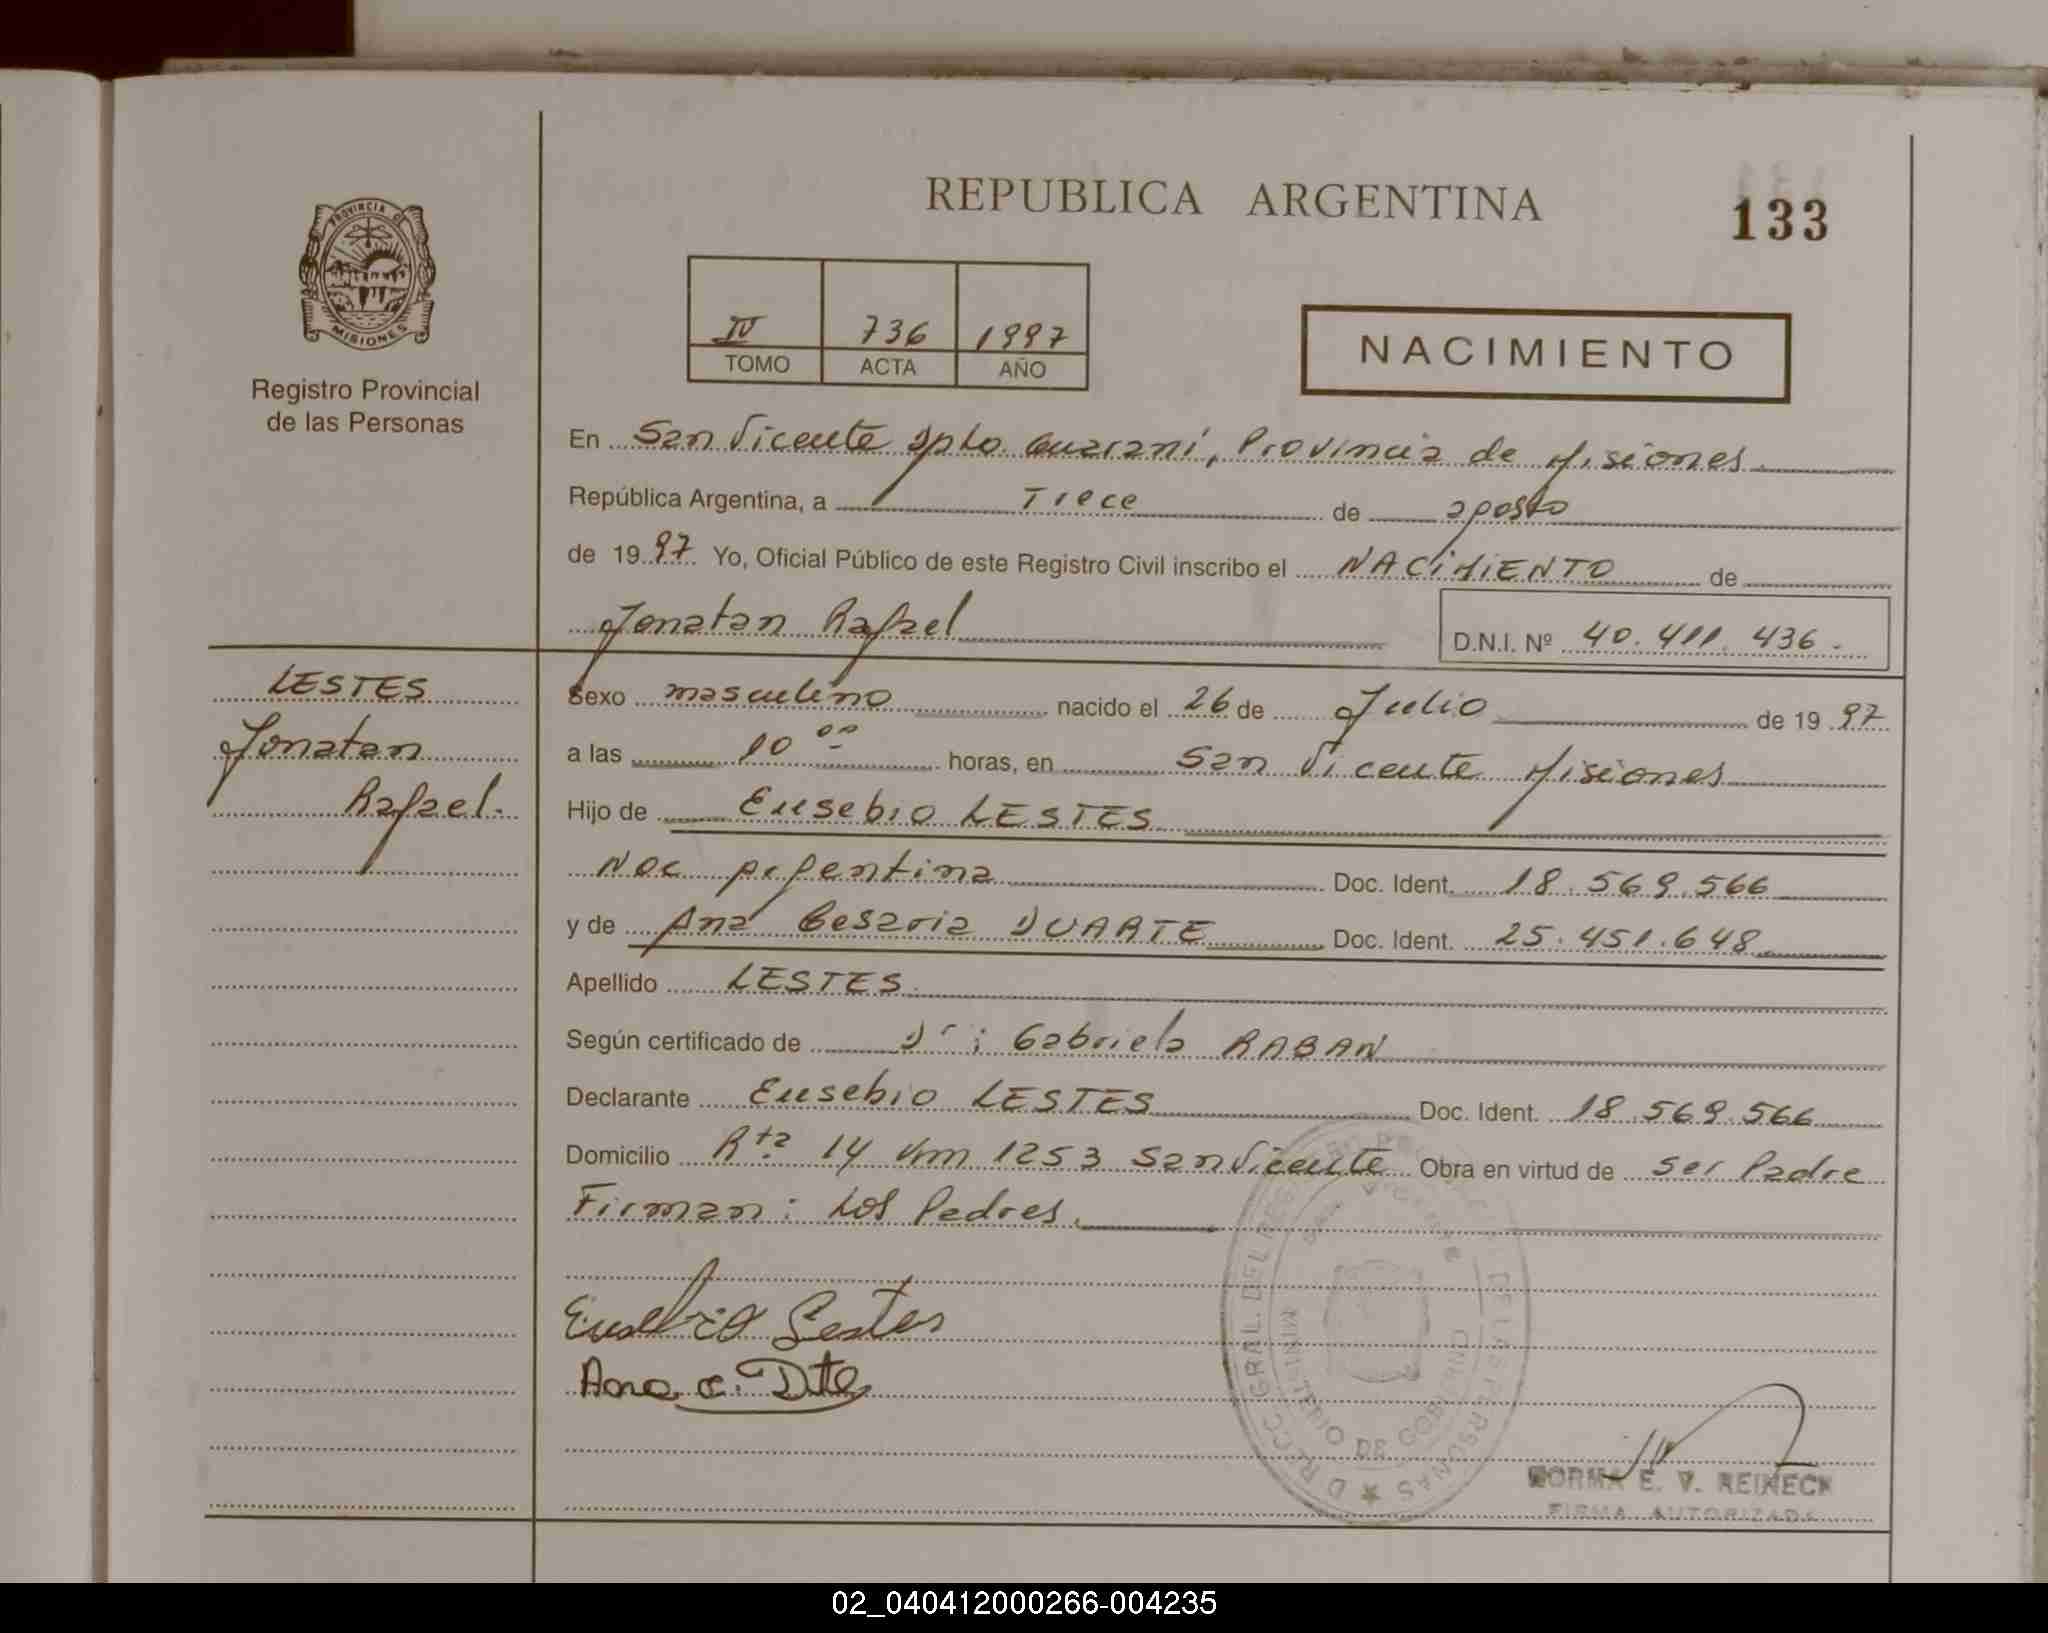 REPUBLICA ARGENTINA
133
PROVINCIA DE
MISIONES
Registro Provincial
de las Personas
IV 736 1997
TOMO ACTA AÑO
NACIMIENTO
En San Vicente Dpto. Guaraní, Provincia de Misiones
República Argentina, a Trece de agosto
de 1997 Yo, Oficial Público de este Registro Civil inscribo el NACIMIENTO de
Jonatan Rafael
D.N.I. Nº 40.411.436.
LESTES
Jonatan
Rafael.
Sexo masculino nacido el 26 de Julio de 1997
a las 10 00 horas, en San Vicente Misiones
Hijo de Eusebio LESTES
Nac Argentina Doc. Ident. 18.569.566
y de Ana Cesaria DUARTE Doc. Ident. 25.451.648
Apellido LESTES
Según certificado de Dr: Gabriela RABAN
Declarante Eusebio LESTES Doc. Ident. 18.569.566
Domicilio Rta. 14 Km 1253 San Vicente Obra en virtud de ser Padre
Firman: Los Padres.
Eusebio Lestes
Ana c. Dte
DIRECC. GRAL. DEL REGISTRO PROVINCIAL DE LAS PERSONAS
SAN VICENTE
MINISTERIO DE GOBIERNO
NORMA E. V. REINECK
FIRMA AUTORIZADA
02_040412000266-004235